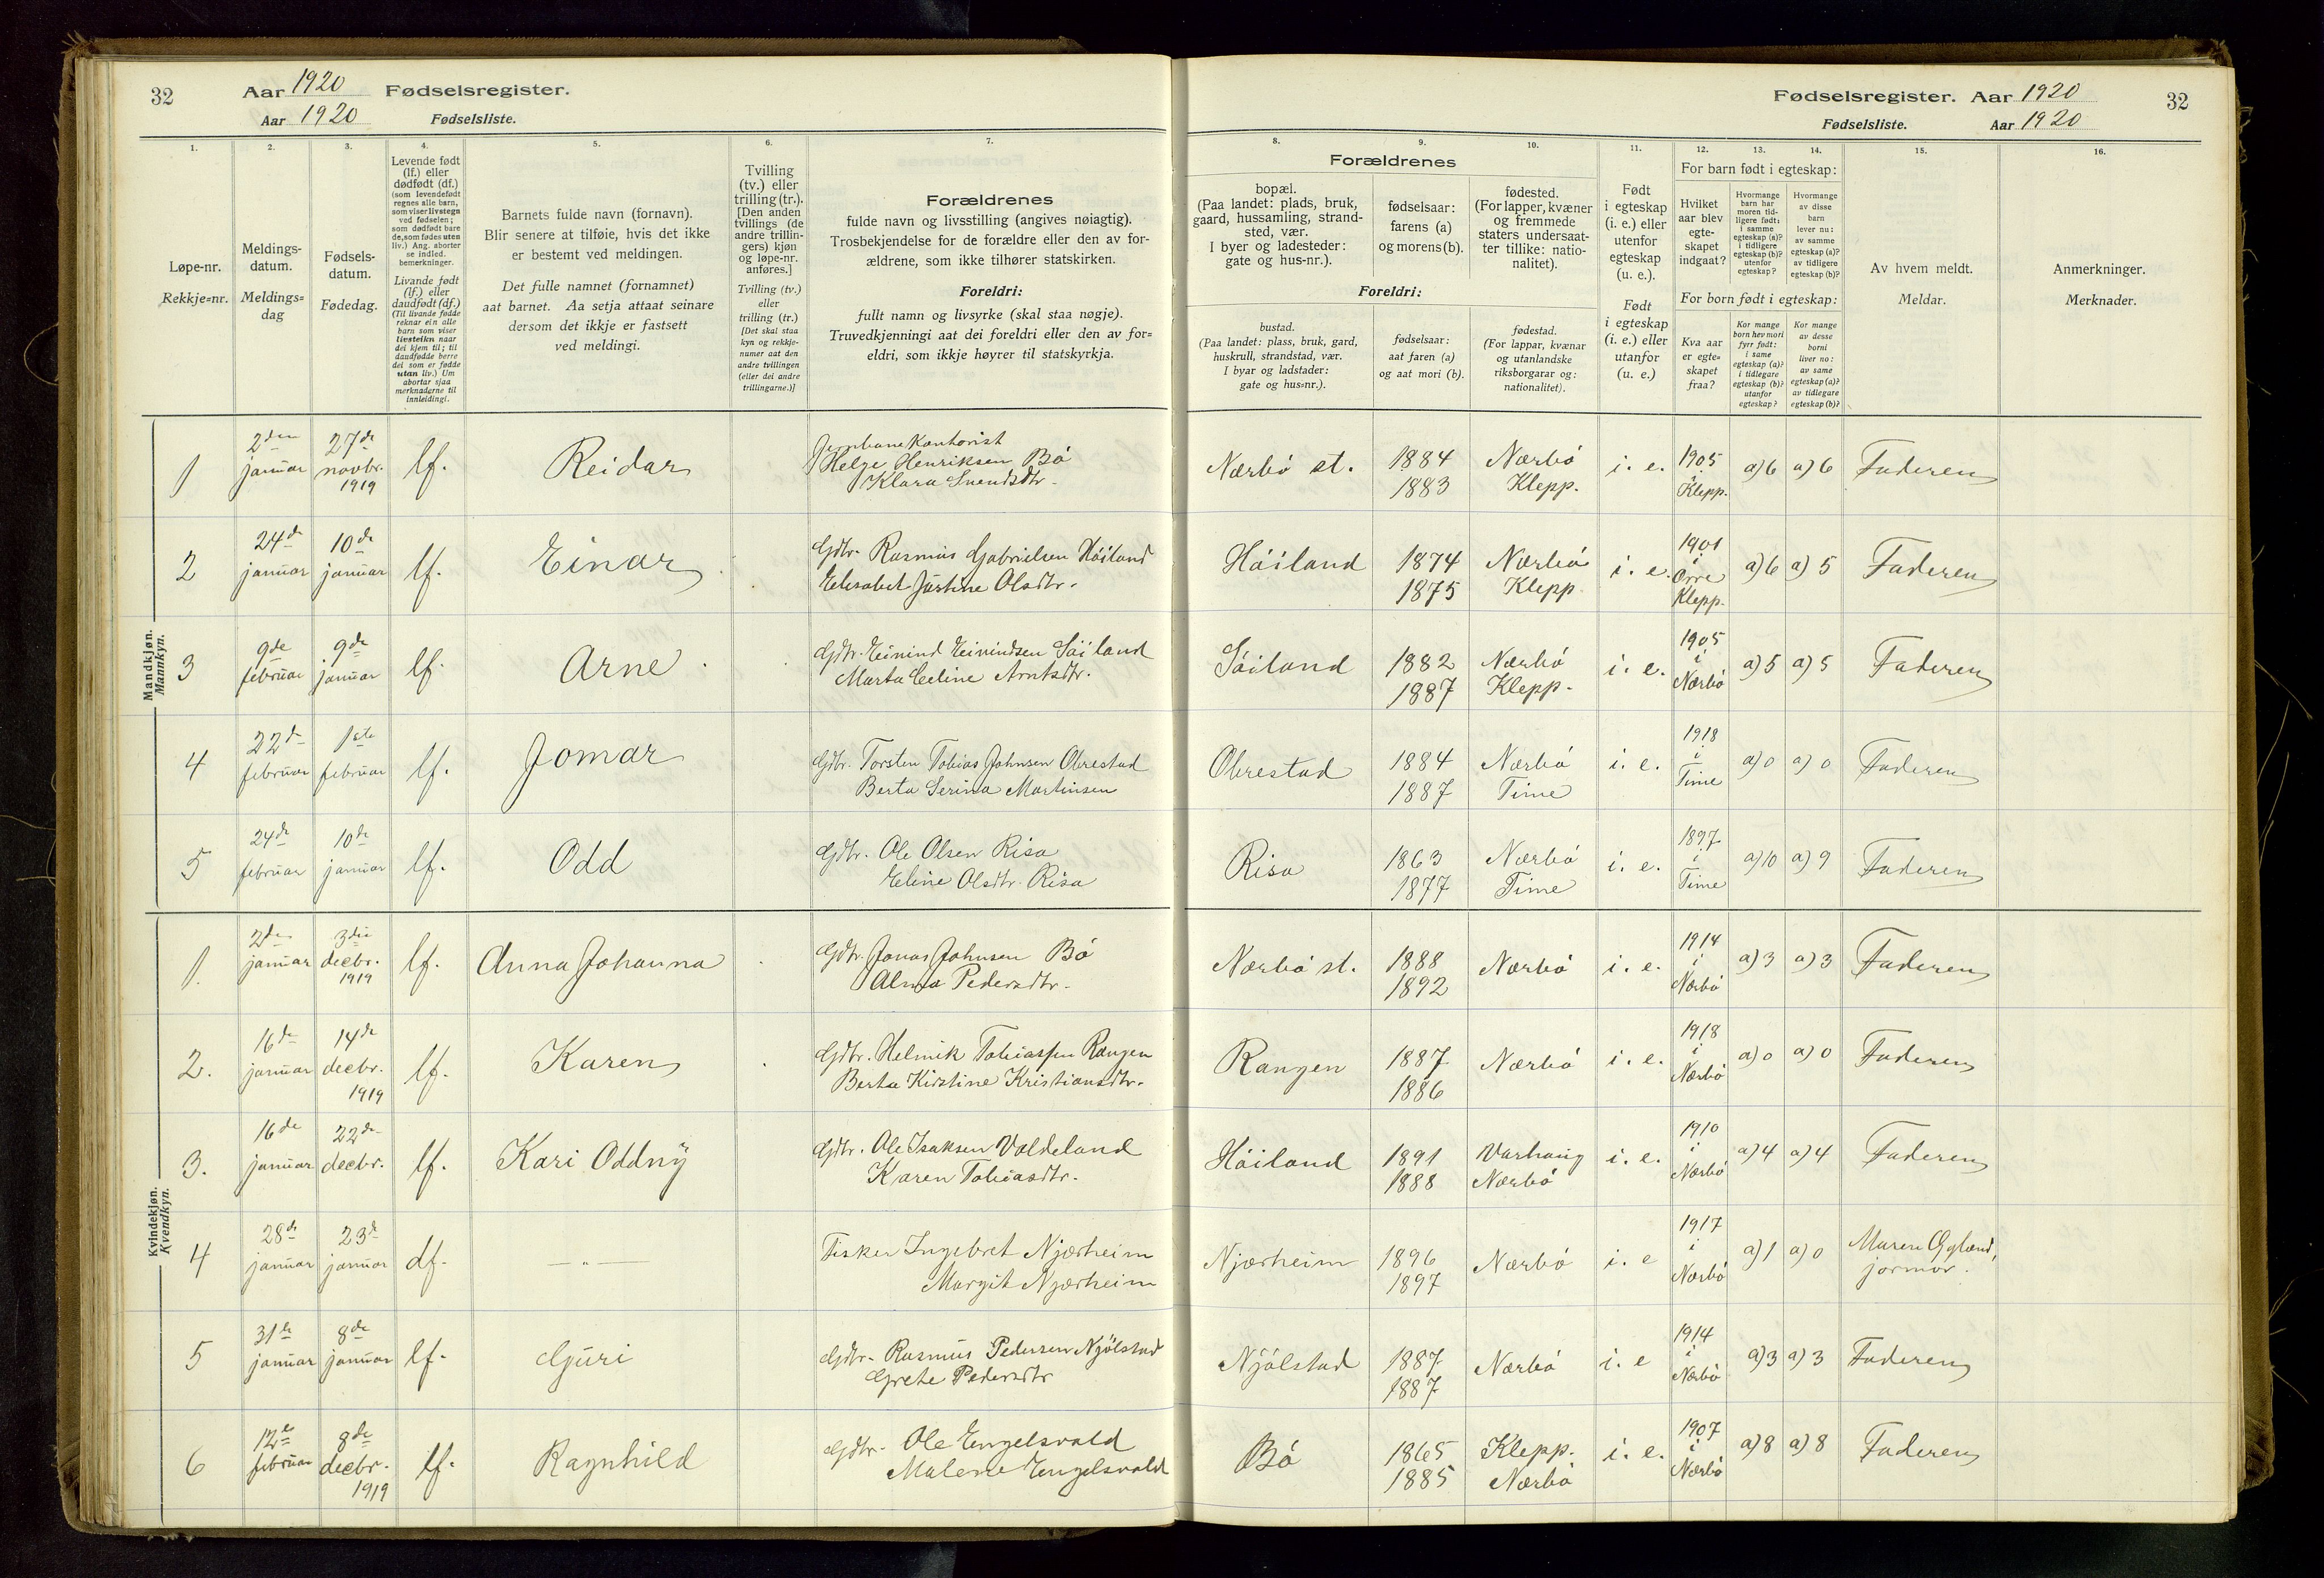 32
Aar 1920 Fødselsregister.
Aar 1920 Fødselsliste.
1.
2.
3.
4.
5.
6.
7.
Løpe-nr.
Rekkje=nr.
Meldings-
datum.
Meldings=
dag
Fødsels-
datum.
Fødedag.
Levende født
(lf.) eller
dødfødt (df.)
(som levendefødt
regnes alle barn,
som viser livstegn
ved fødselen;
som dødfødt bare
de, som fødes uten
liv.) Ang. aborter
se indled.
bemerkninger.
Livande født
(lf.) eller
daudfødt (df.)
(Til livande fødde
reknar ein alle
barn som viser
livsteikn naar
dei kjem til; til
daudfødde berre
dei som er fødde
utan liv.) Um
abortar sjaa
merknaderne til
innleidingi.
Barnets fulde navn (fornavn).
Blir senere at tilføie, hvis det ikke
er bestemt ved meldingen.
Det fulle namnet (fornamnet)
aat barnet. Aa setja attaat seinare
dersom det ikkje er fastsett
ved meldingi.
Tvilling
(tv.) eller
trilling (tr.).
[Den anden
tvillings (de
andre trillin-
gers) kjøn
og løpe-nr.
anføres.]
Tvilling (tv.)
eller
trilling (tr.)
[Det skal staa
kyn og rekkje-
numer aat den
andre tvillingen
(eller dei andre
trillingarne.)]
Forældrenes
fulde navn og livsstilling (angives nøiagtig).
Trosbekjendelse for de forældre eller den av for-
ældrene, som ikke tilhører statskirken.
Foreldri:
fullt namn og livsyrke (skal staa nøgje).
Truvedkjenningi aat dei foreldri eller den av for=
eldri, som ikkje høyrer til statskyrkja.
Mandkjøn.
Mannkyn.
1
2den januar
27de novbr. 1919
lf.
Reidar
Jernbanekontorist
Helge Henriksen Bø
Klara Svendsdtr.
2
24de januar
10de januar
lf.
Einar
Gdbr. Rasmus Gabrielsen Høiland
Elisabet Justine Olsdtr.
3
9de februar
9de januar
lf.
Arne
Gdbr. Eivind Eivindsen Søiland
Marta Eeline Arntsdtr.
4
22de februar
1ste februar
lf.
Jomar
Gdbr. Torsten Tobias Johnsen Obrestad
Berta Serina Martinsen
5
24de februar
10de januar
lf.
Odd
Gdbr. Ole Olsen Risa
Eline Olsdtr. Risa
Kvindekjøn.
Kvendkyn.
1.
2den januar
3die decbr. 1919
lf.
Anna Johanna
Gdbr. Jonas Johnsen Bø
Alma Pedersdtr.
2.
16de januar
14de decbr. 1919
lf.
Karen
Gdbr. Helmik Tobiassen Rangen
Berta Kirstine Kristiansdtr.
3.
16de januar
22de decbr.
lf.
Kari Oddny
Gdbr. Ole Isaksen Valdeland
Karen Tobiasdtr.
4
28de januar
23de januar
df.
— " —
Fisker Ingebret Njærheim
Margit Njærheim
5
31te januar
8de januar
lf.
Guri
Gdbr. Rasmus Pedersen Njølstad
Grete Pedersdtr
6
12te februar
8de decbr. 1919
lf.
Ragnhild
Gdbr. Ole Engelsvold
Malene Engelsvold
Fødselsregister. Aar 1920
32
Fødselsliste. Aar 1920
8.
9.
10.
11.
12.
13.
14.
15.
16.
Forældrenes
bopæl.
(Paa landet: plads, bruk,
gaard, hussamling, strand-
sted, vær.
I byer og ladesteder:
gate og hus-nr.).
fødselsaar:
farens (a)
og morens (b).
fødested.
(For lapper, kvæner
og fremmede
staters undersaat-
ter tillike: natio-
nalitet).
Foreldri:
bustad.
(Paa landet: plass, bruk, gard,
huskrull, strandstad, vær.
I byar og ladstader:
gate og hus=nr.).
fødselsaar:
aat faren (a)
og aat mori (b).
fødestad.
(For lappar, kvænar
og utanlandske
riksborgarar og:
nationalitet).
Født
i egteskap
(i. e.) eller
utenfor
egteskap
(u. e.).
Født
i egteskap
(i. e.) eller
utanfor
(u. e.)
For barn født i egteskap:
Hvilket
aar blev
egte-
skapet
indgaat?
Hvormange
barn har
moren tid-
ligere født:
i samme
egteskap (a)?
i tidligere
egteskap (b)?
utenfor
egteskap?
Hvormange
av disse
barn
lever nu:
av samme
egteskap (a)?
av tidligere
egteskap (b)?
For born født i egteskap:
Kva aar
er egte=
skapet
fraa?
Kor mange
born hev mori
fyrr født:
i same
egteskap (a)?
i tidlegare
egteskap (b)?
utanfor
egteskap?
Kor mange
av desse
borni
liver no:
av same
egteskap (a)?
av tidlegare
egteskap (b)?
Av hvem meldt.
Meldar.
Anmerkninger.
Merknader.
Nærbø st.
1884
1883
Nærbø
Klepp.
i. e.
1905 i Klepp.
a) 6
a) 6
Faderen
Høiland
1874
1875
Nærbø
Klepp
i. e.
1901 i Orre Klepp.
a) 6
a) 5
Faderen
Søiland
1882
1887
Nærbø
Klepp.
i. e.
1905 i Nærbø
a) 5
a) 5
Faderen
Obrestad
1884
1887
Nærbø
Time
i. e.
1918 i Time
a) 0
a) 0
Faderen
Risa
1863
1877
Nærbø
Time
i. e.
1897 i Time
a) 10
a) 9
Faderen
Nærbø st.
1888
1892
Nærbø
i. e.
1914 i Nærbø
a) 3
a) 3
Faderen
Rangen
1887
1886
Nærbø
i. e.
1918 i Nærbø
a) 0
a) 0
Faderen
Høiland
1891
1888
Varhaug
Nærbø
i. e.
1910 i Nærbø
a) 4
a) 4
Faderen
Njærheim
1896
1897
Nærbø
i. e
1917 i Nærbø
a) 1
a) 0
Maren Ogland,
jormor.
Njølstad
1887
1887
Nærbø
i. e
1914 i Nærbø
a) 3
a) 3
Faderen
Bø
1865
1885
Klepp.
Nærbø
i. e.
1907 i Nærbø
a) 8
a) 8
Faderen